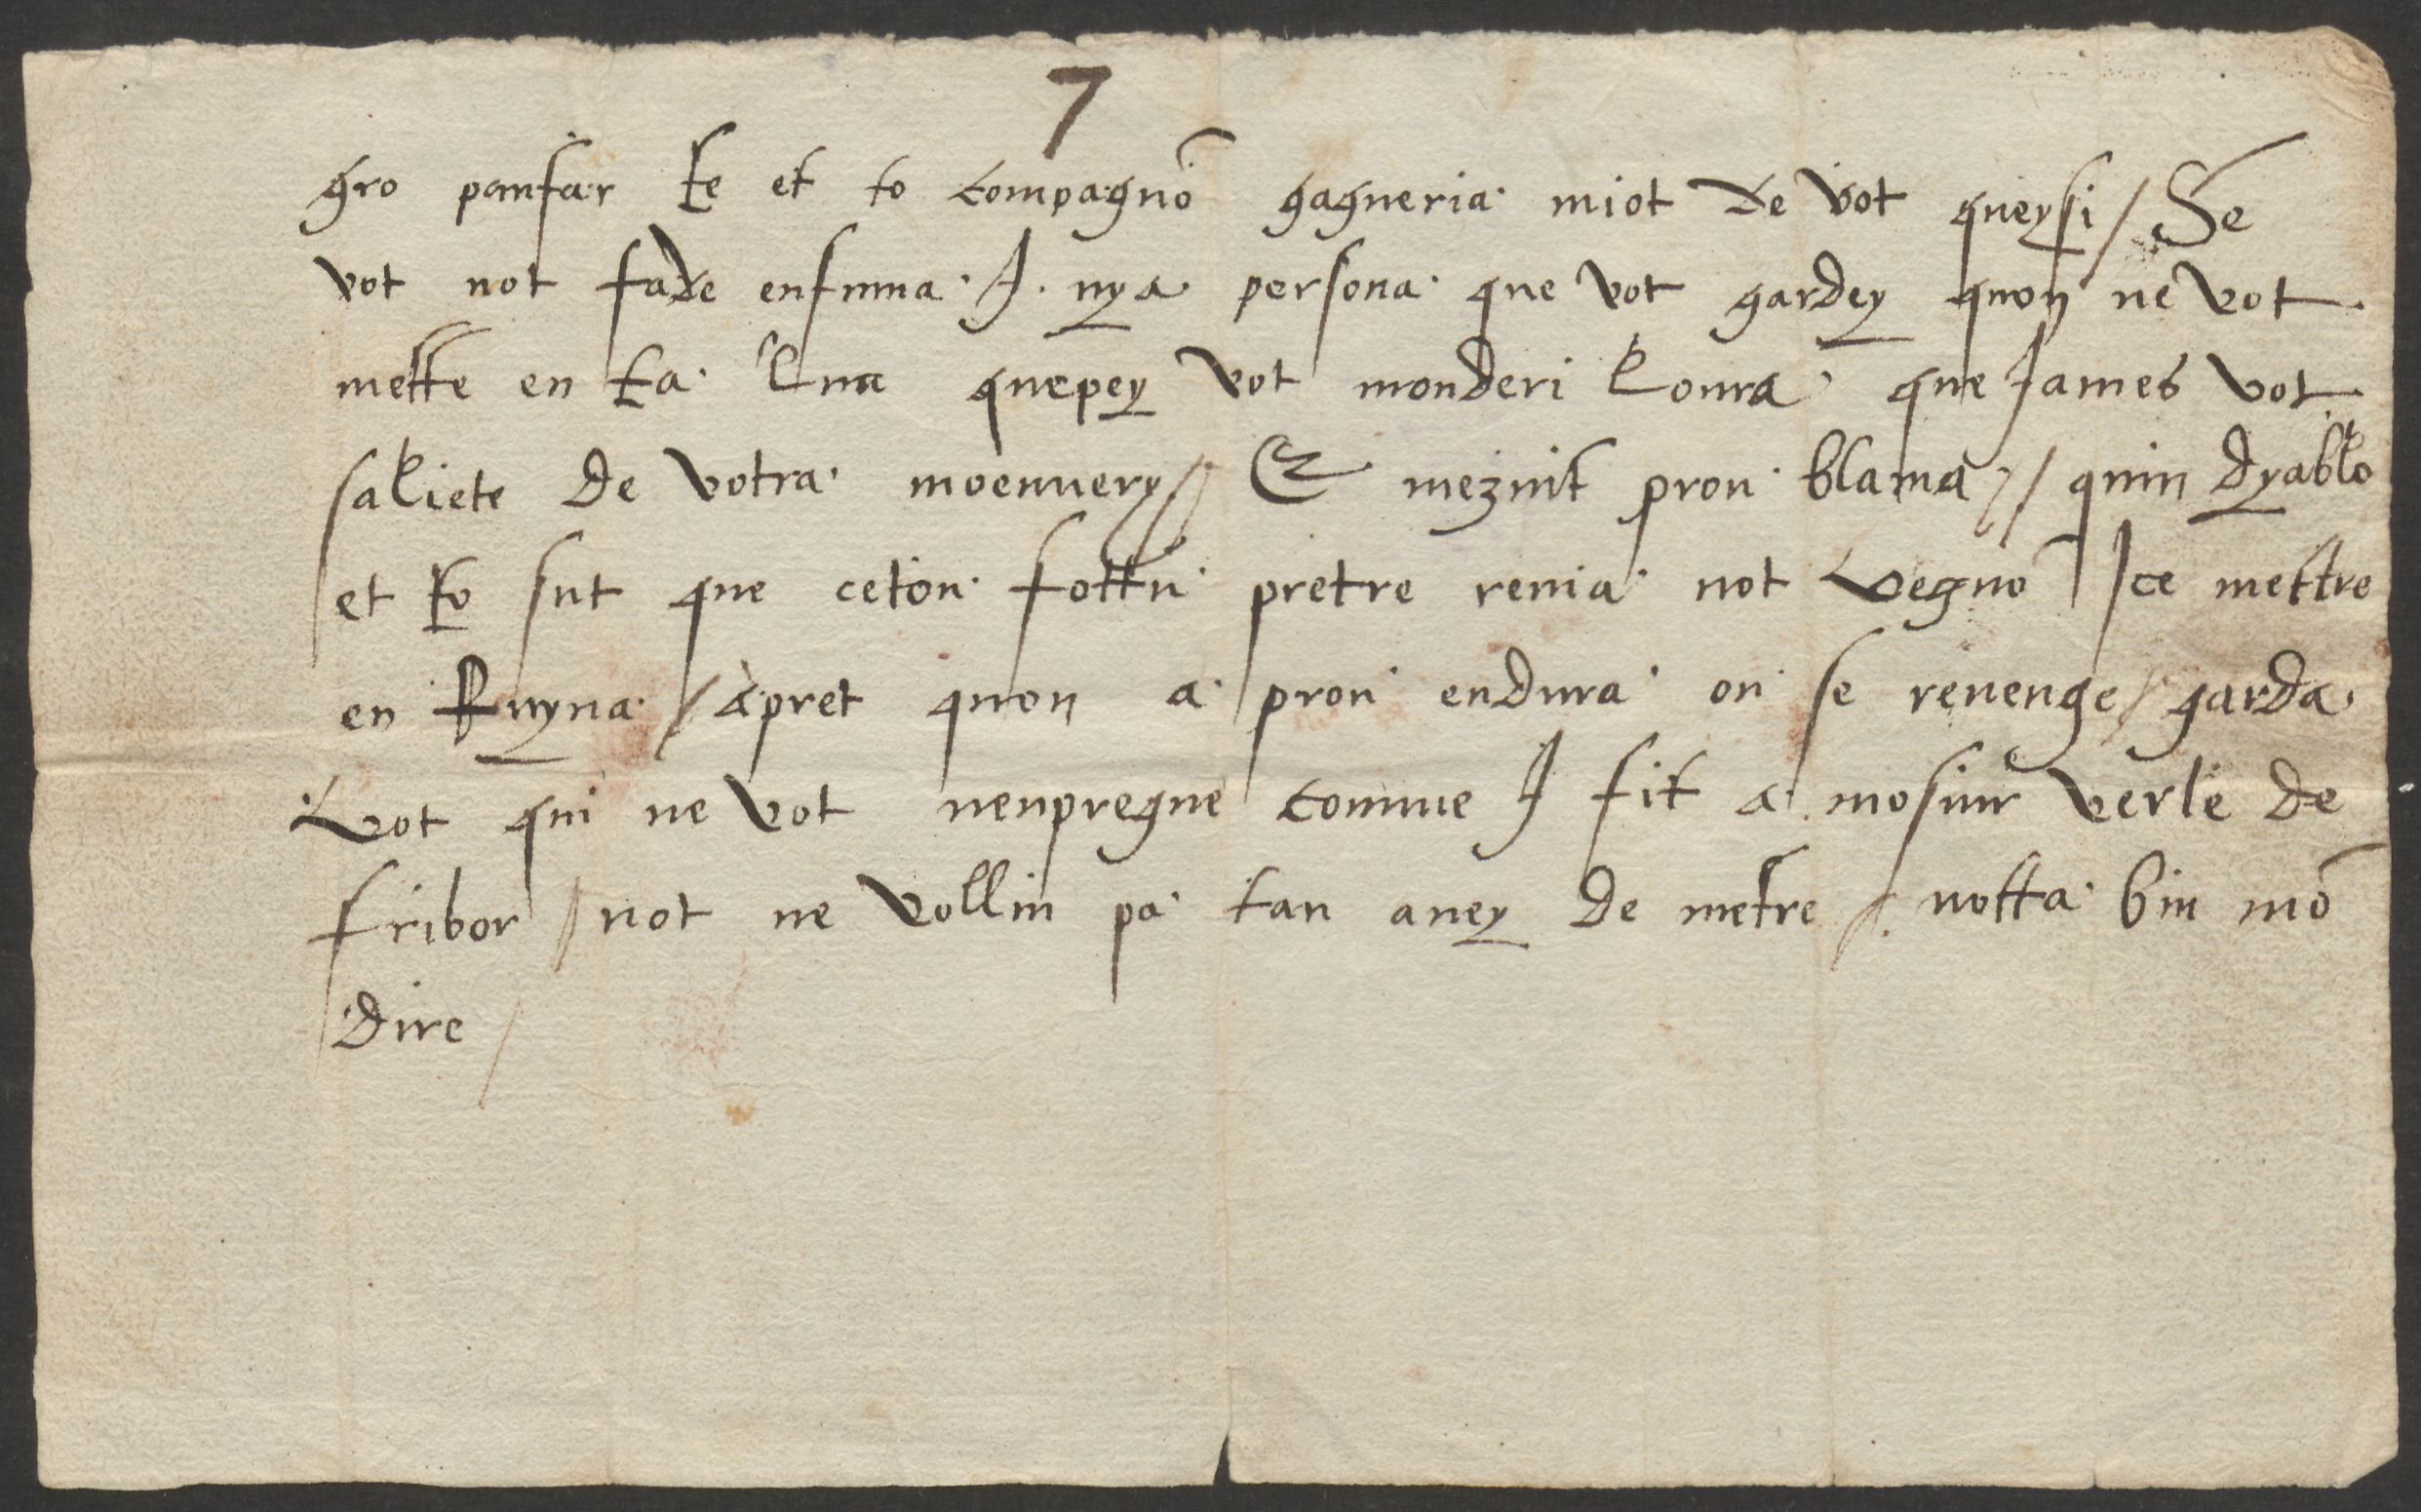 7
gro panfar te et to compagnō gagneria miot de vot queysi / Se
vot not fade enfuma. I. nya persona que vot gardey quon ne vot
mette en ta lua quepey vot monderi loura que James vot
saliete de votra moennery // & mezuit prou blama // quin dyablo
et to sut que ceton fottu pretre renia not vegnō Ice mettre
en Ruyna / apret quon a prou endura on se reuenge / garda
vot qui ne vot nenpregne comme I fit a mosiur verle de
fribor / not ne vollin pa tan aney de metre / notta bin mō
dire /